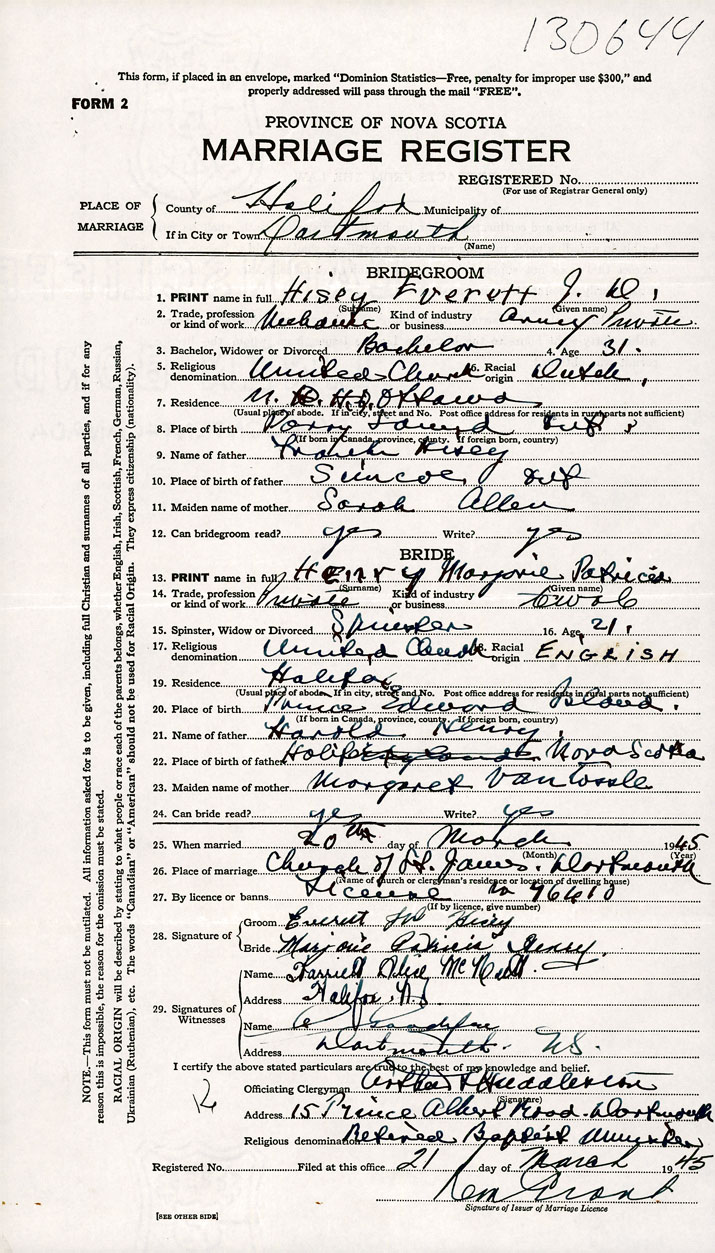 130644
This form, if placed in an envelope, marked “Dominion Statistics—Free, penalty for improper use $300,” and
properly addressed will pass through the mail “FREE”.
FORM 2
PROVINCE OF NOVA SCOTIA
MARRIAGE REGISTER
REGISTERED No.
(For use of Registrar General only)
PLACE OF MARRIAGE
County of Halifax Municipality of
If in City or Town Dartmouth
(Name)
BRIDEGROOM
1. PRINT name in full Hisey Everett J. W.
(Surname) (Given name)
2. Trade, profession or kind of work Mechanic Kind of industry or business Army Private
3. Bachelor, Widower or Divorced Bachelor 4. Age 31.
5. Religious denomination United Church 6. Racial origin Dutch
7. Residence N. D. H. Q. Ottawa
(Usual place of abode. If in city, street and No. Post office address for residents in rural parts not sufficient)
8. Place of birth Parry Sound Ont
(If born in Canada, province, county. If foreign born, country)
9. Name of father Hisey
10. Place of birth of father Simcoe Ont
11. Maiden name of mother Sarah Allen
12. Can bridegroom read? yes Write? yes
BRIDE
13. PRINT name in full Henry Marjorie Patricia
(Surname) (Given name)
14. Trade, profession or kind of work Private Kind of industry or business Cwac
15. Spinster, Widow or Divorced Spinster 16. Age 21.
17. Religious denomination United Church 18. Racial origin ENGLISH
19. Residence Halifax
(Usual place of abode. If in city, street and No. Post office address for residents in rural parts not sufficient)
20. Place of birth Prince Edward Island.
(If born in Canada, province, county. If foreign born, country)
21. Name of father Harold Henry
22. Place of birth of father Halifax Nova Scotia
23. Maiden name of mother Margaret Van
24. Can bride read? yes Write? yes
25. When married 20th day of March 1945
(Month) (Year)
26. Place of marriage Church of St. James. Dartmouth
(Name of church or clergyman's residence or location of dwelling house)
27. By licence or banns License No 96610
(If by licence, give number)
28. Signature of
Groom Everett Hisey
Bride Marjorie Patricia Henry.
29. Signatures of Witnesses
Name Harriett Alice
Address Halifax, N.S.
Name
Address Dartmouth. NS.
I certify the above stated particulars are true to the best of my knowledge and belief.
Officiating Clergyman Arthur Huddleston
(Signature)
Address 15 Prince Albert Road. Dartmouth
Religious denomination Retired Baptist Minister
Registered No. Filed at this office 21 day of March 1945
Grant
Signature of Issuer of Marriage Licence
[SEE OTHER SIDE]
NOTE.—This form must not be mutilated. All information asked for is to be given, including full Christian and surnames of all parties, and if for any
reason this is impossible, the reason for the omission must be stated.
RACIAL ORIGIN will be described by stating to what people or race each of the parents belongs, whether English, Irish, Scottish, French, German, Russian,
Ukrainian (Ruthenian), etc. The words “Canadian” or “American” should not be used for Racial Origin. They express citizenship (nationality).